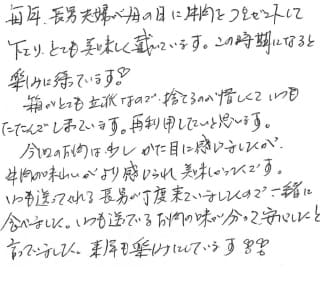 毎年、長男夫婦が母の日に牛肉をプレゼントして
下さり、とても美味しく戴いています。この時期になると
楽しみに待っています♡
箱がとても立派なので、捨てるのが惜しくていつも
たたんでしまっています。再利用したいと思います。
今回のお肉は少しかた目に感じましたが、
牛肉の味わいがより感じられ美味しかったです。
いつも送ってくれる長男が丁度来ていましたので一緒に
食べました。いつも送っているお肉の味が分って安心したと
言っていました。来年も楽しみにしています